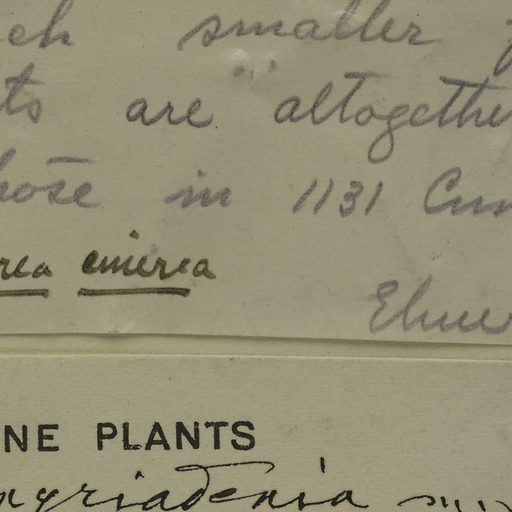 ch smaller
ts are altogether
hose in 1131 Cum
rea cinerea
Elmer
NE PLANTS
myriadenia